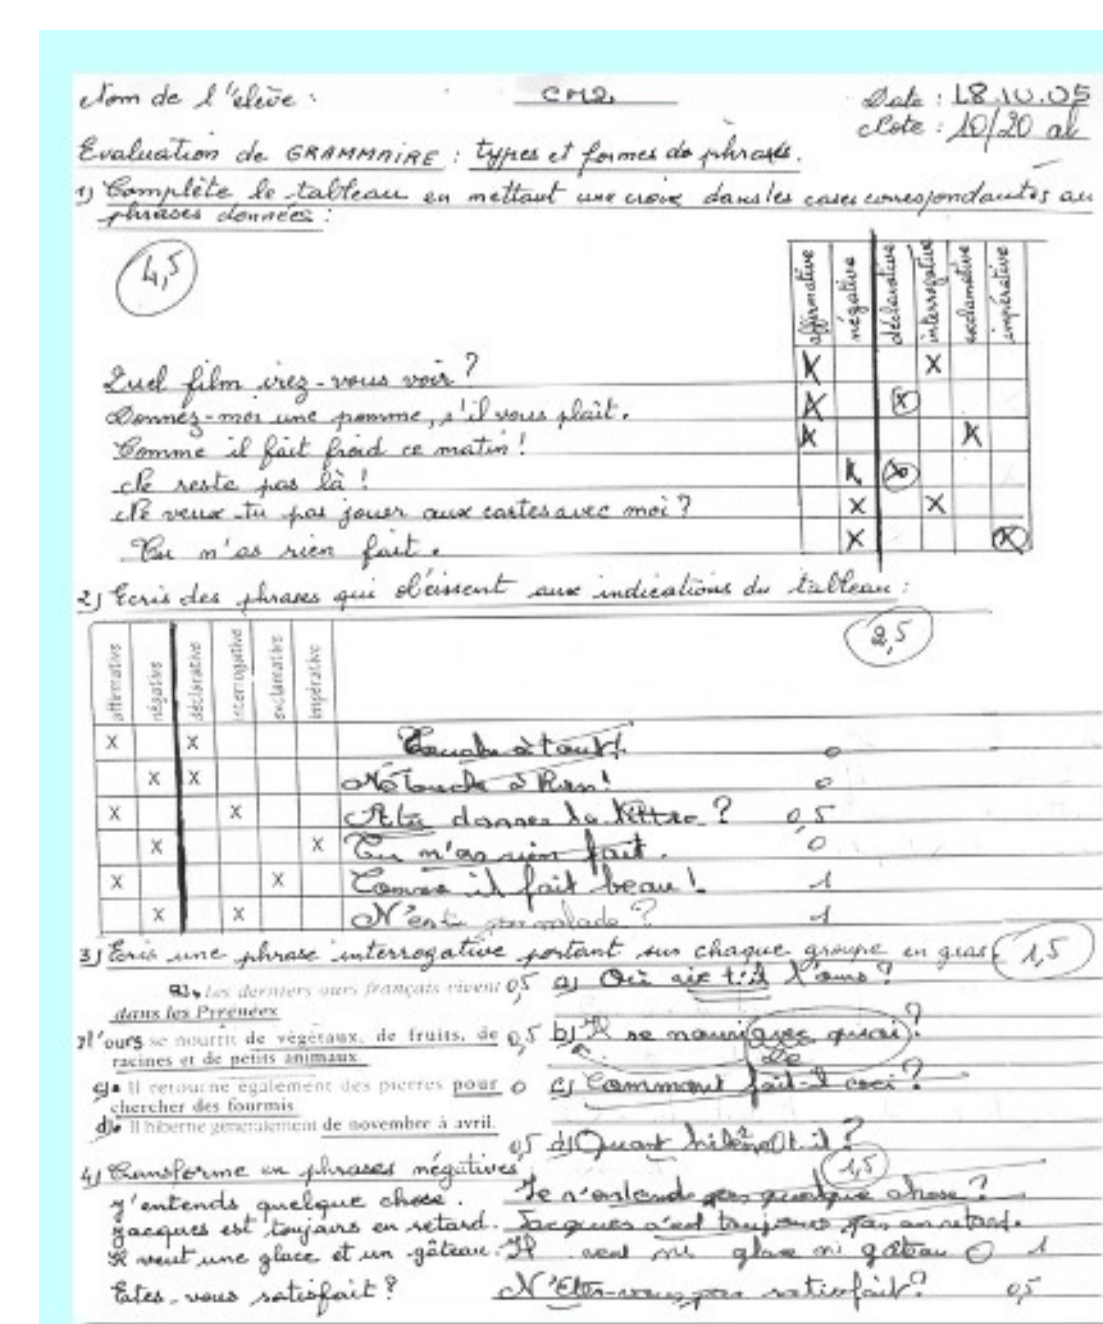 Nom de l'elève : CM2 Date : 18.10.05
Note : 10/20 ab
Evaluation de GRAMMAIRE : types et formes de phrases.
1) Complète le tableau en mettant une croix dans les cases correspondantes au
phrases données :
4,5
affirmative négative déclarative interrogative exclamative impérative
Quel film irez-vous voir ? X X
Donnez-moi une pomme, s'il vous plaît. X X
Comme il fait froid ce matin ! X X
Ne reste pas là ! X X
Ne veux-tu pas jouer aux cartes avec moi ? X X
Tu n'as rien fait. X X
2) Ecris des phrases qui obéissent aux indications du tableau :
2,5
affirmative négative déclarative interrogative exclamative impérative
X X Touche à tout ! 0
X X Ne touche à Rien ! 0
X X donner la lettre ? 0,5
X X Tu n'as rien fait. 0
X X Comme il fait beau ! 1
X X N'es pas malade ? 1
3) Ecris une phrase interrogative portant sur chaque groupe en gras 1,5
a) Les derniers ours français vivent 0,5 a) Où t'il l'ours ?
dans les Pyrénées
l'ours se nourrit de végétaux, de fruits, de 0,5 b) Il se nouri avec quoi ?
racines et de petits animaux.
De
c) Il retourne également des pierres pour 0 c) Commant fait-l ceci ?
chercher des fourmis
d) Il hiberne généralement de novembre à avril.
0,5 d) Quant t-il ?
4) Transforme en phrases négatives 1,5
J'entends quelque chose. Je n'entends pas quelque chose ?
Jacques est toujours en retard. Jacques n'est toujours pas en retard.
Il veut une glace et un gâteau. Il veut ni glace ni gâteau 1
Etes-vous satisfait ? N'Etes-vous pas satisfait ? 0,5